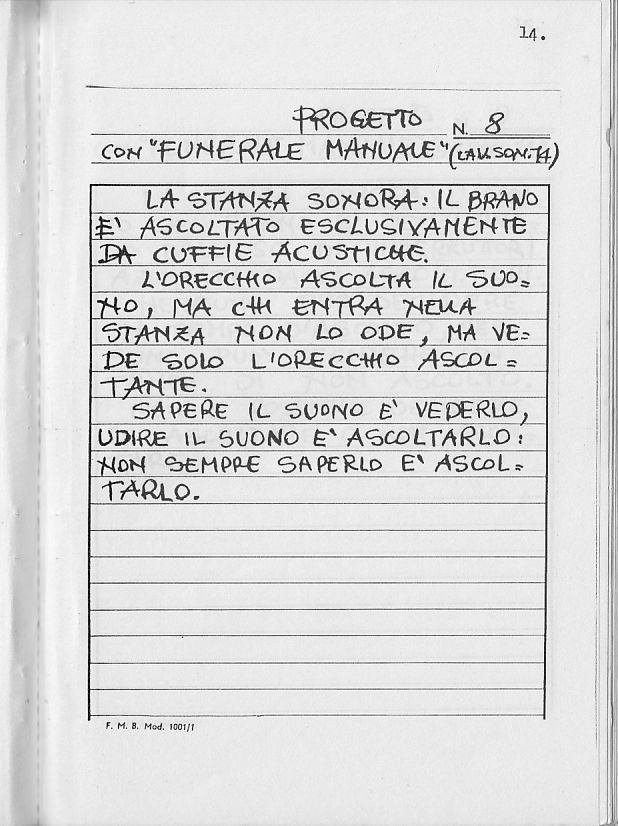 14.
PROGETTO N. 8
CON "FUNERALE MANUALE" (LAV. SON. 74)
LA STANZA SONORA: IL BRANO
E' ASCOLTATO ESCLUSIVAMENTE
DA CUFFIE ACUSTICHE.
L'ORECCHIO ASCOLTA IL SUO=
NO, MA CHI ENTRA NELLA
STANZA NON LO ODE, MA VE=
DE SOLO L'ORECCHIO ASCOL=
TANTE.
SAPERE IL SUONO E' VEDERLO,
UDIRE IL SUONO E' ASCOLTARLO:
NON SEMPRE SAPERLO E' ASCOL=
TARLO.
F. M. B. Mod. 1001/1